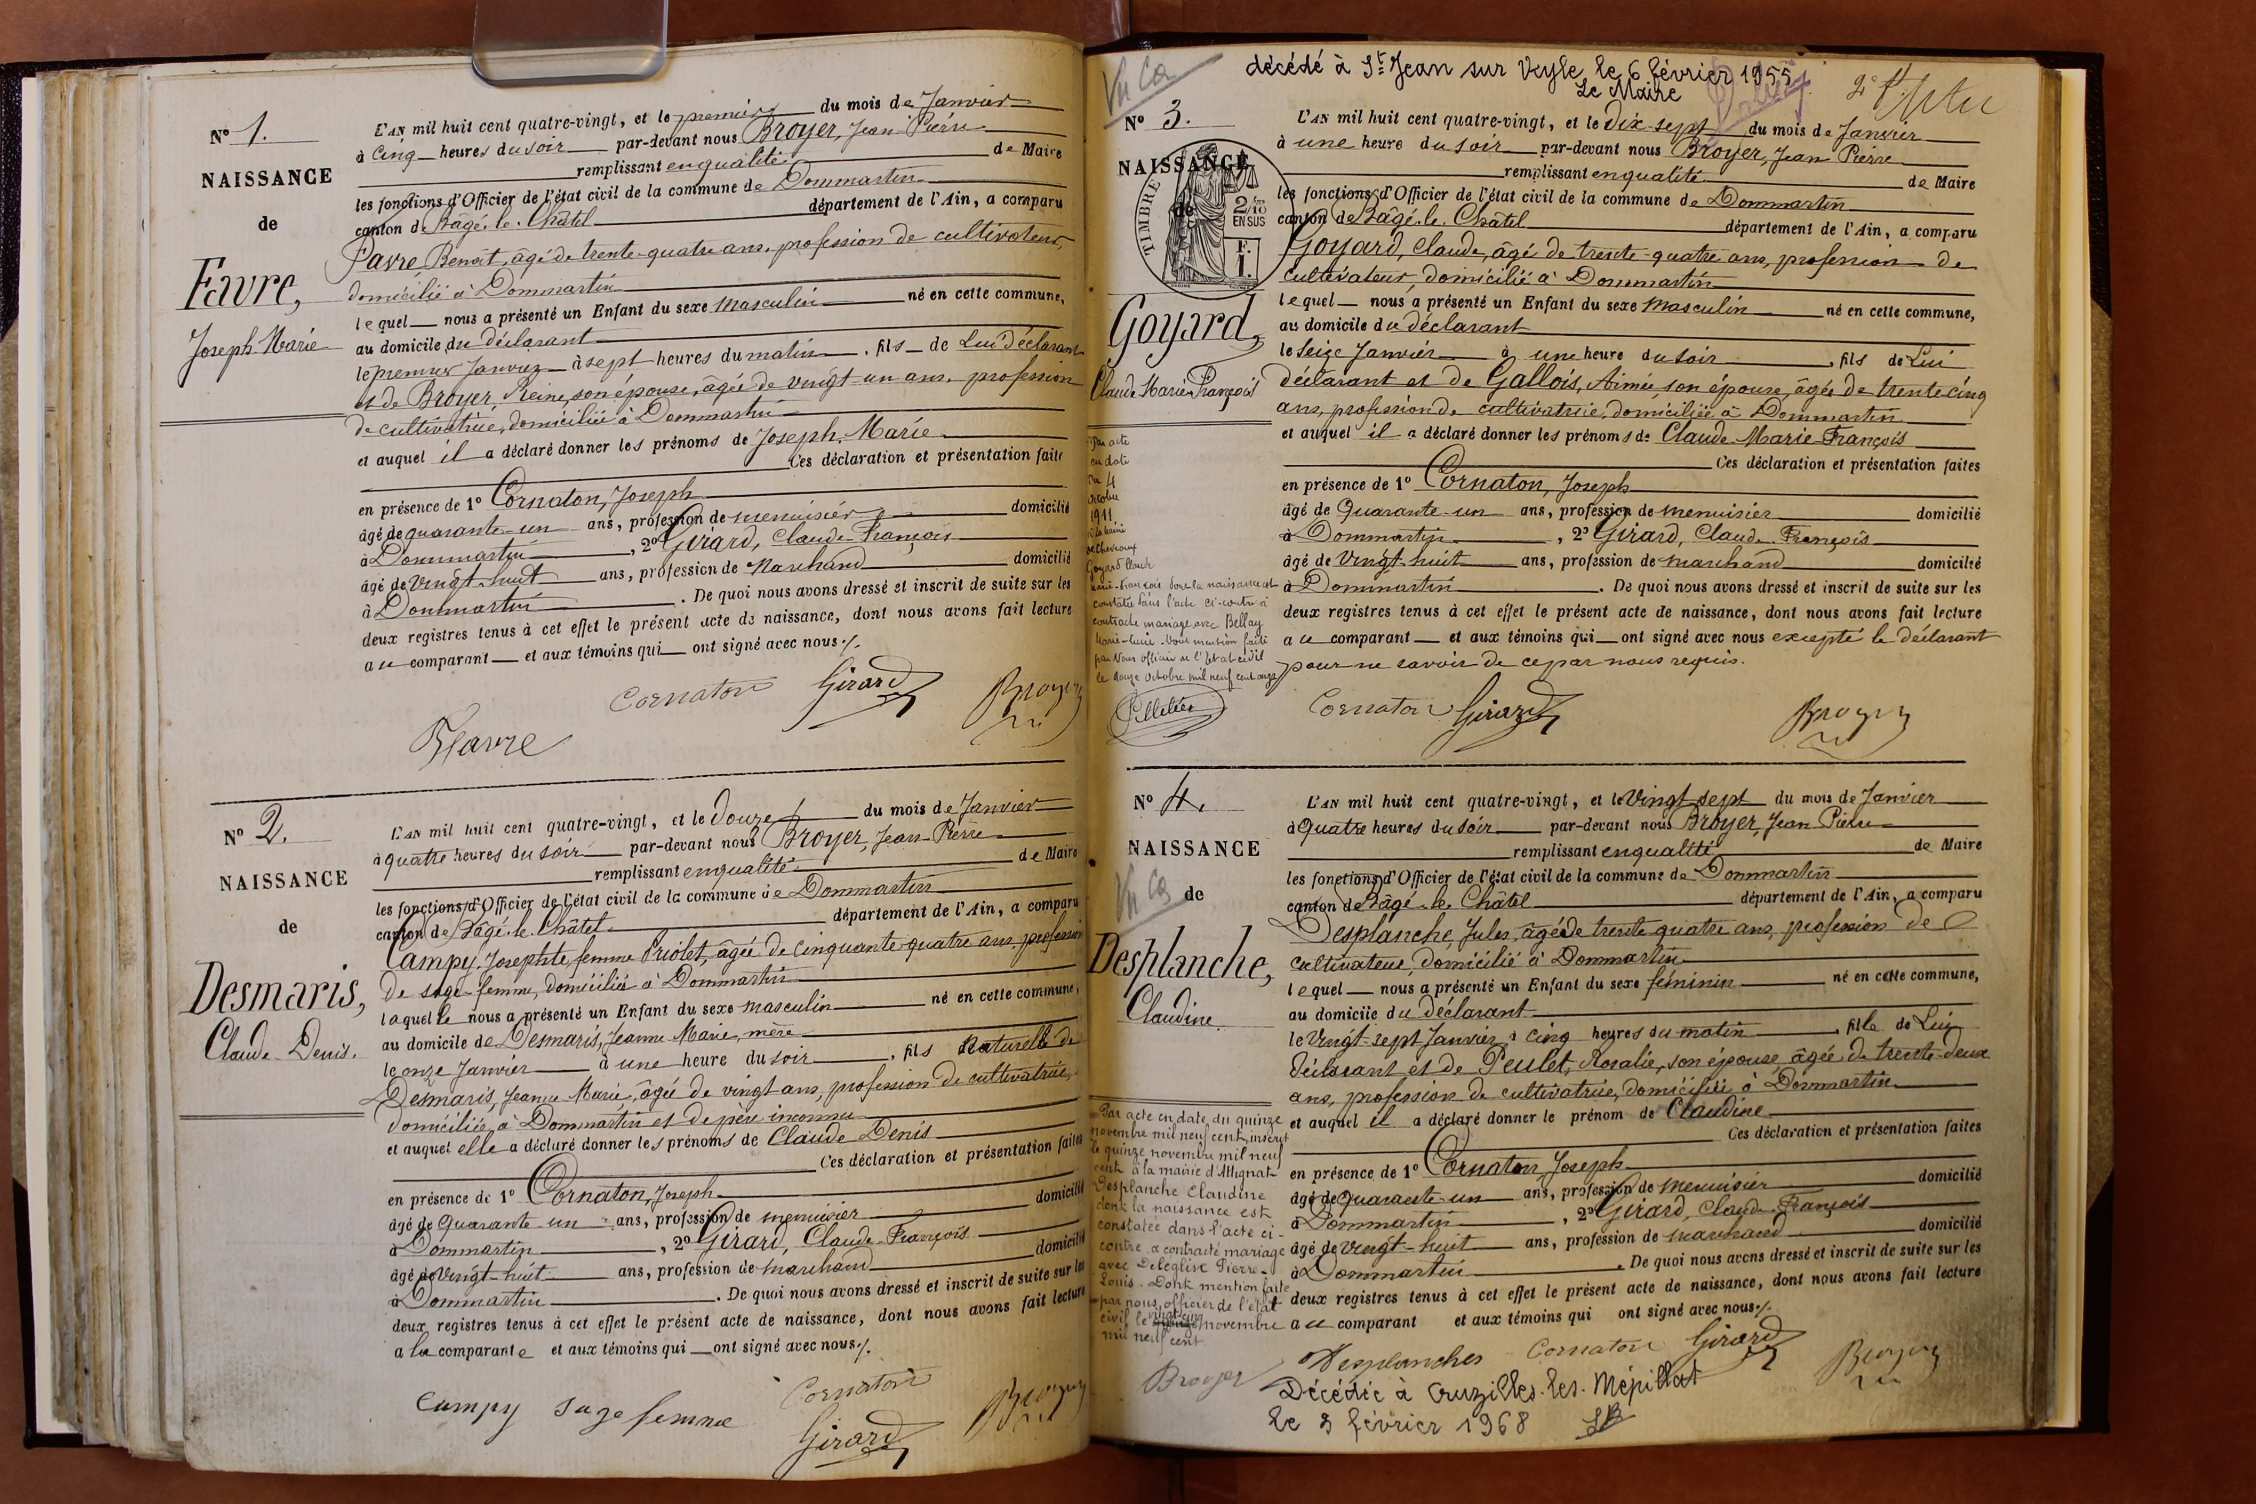 N° 1.
NAISSANCE
de
Favre,
Joseph Marie
L'AN mil huit cent quatre-vingt, et le premier du mois de Janvier
à cinq heures du soir par-devant nous Broyer, Jean Pierre
remplissant en qualité de Maire
les fonctions d'Officier de l'état civil de la commune de Dommartin
canton de Bâgé-le-Châtel département de l'Ain, a comparu
Favre, Benoît, âgé de trente-quatre ans, profession de cultivateur,
domicilié à Dommartin
lequel nous a présenté un Enfant du sexe masculin né en cette commune,
au domicile du déclarant
le premier Janvier à sept heures du matin, fils de Lui Déclarant
et de Broyer, Reine, son épouse, âgée de vingt-un ans, profession
de cultivatrice, domiciliée à Dommartin
et auquel il a déclaré donner les prénoms de Joseph-Marie
Ces déclaration et présentation faite
en présence de 1° Cornaton, Joseph
âgé de quarante-un ans, profession de menuisier domicilié
à Dommartin, 2° Girard, Claude-François
âgé de vingt-huit ans, profession de marchand domicilié
à Dommartin. De quoi nous avons dressé et inscrit de suite sur les
deux registres tenus à cet effet le présent acte de naissance, dont nous avons fait lecture
au comparant et aux témoins qui ont signé avec nous ./.
Cornaton Girard Broyer
B Favre
N° 2.
NAISSANCE
de
Desmaris,
Claude Denis.
L'AN mil huit cent quatre-vingt, et le douze du mois de Janvier
à quatre heures du soir par-devant nous Broyer, Jean Pierre
remplissant en qualité de Maire
les fonctions d'Officier de l'état civil de la commune de Dommartin
canton de Bâgé-le-Châtel département de l'Ain, a comparu
Campy, Josephte, femme Priolet, âgée de cinquante-quatre ans, profession
de sage-femme, domiciliée à Dommartin
laquelle nous a présenté un Enfant du sexe masculin né en cette commune,
au domicile de Desmaris, Jeanne Marie, mère
le onze Janvier à une heure du soir, fils Naturelle de
Desmaris, Jeanne Marie, âgée de vingt ans, profession de cultivatrice,
domiciliée à Dommartin et de père inconnu
et auquel elle a déclaré donner les prénoms de Claude Denis
Ces déclaration et présentation faites
en présence de 1° Cornaton, Joseph
âgé de quarante-un ans, profession de menuisier domicilié
à Dommartin, 2° Girard, Claude-François
âgé de vingt-huit ans, profession de marchand domicilié
à Dommartin. De quoi nous avons dressé et inscrit de suite sur les
deux registres tenus à cet effet le présent acte de naissance, dont nous avons fait lecture
a la comparante et aux témoins qui ont signé avec nous ./.
Campy sage femme Cornaton Broyer
Girard
décédé à St Jean sur Veyle le 6 février 1955
Le Maire
Vu Ca
N° 3.
NAISSANCE
de
TIMBRE
2/10
EN SUS
F.
1.
Goyard,
Claude Marie François
L'AN mil huit cent quatre-vingt, et le dix-sept du mois de Janvier
à une heure du soir par-devant nous Broyer, Jean Pierre
remplissant en qualité de Maire
les fonctions d'Officier de l'état civil de la commune de Dommartin
canton de Bâgé-le-Châtel département de l'Ain, a comparu
Goyard, Claude, âgé de trente-quatre ans, profession de
cultivateur, domicilié à Dommartin
lequel nous a présenté un Enfant du sexe masculin né en cette commune,
au domicile du déclarant
le Seize Janvier à une heure du soir, fils de Lui
déclarant et de Gallois, Aimée, son épouse, âgée de trente cinq
ans, profession de cultivatrice, domiciliée à Dommartin
et auquel il a déclaré donner les prénoms de Claude-Marie-François
Ces déclaration et présentation faites
en présence de 1° Cornaton, Joseph
âgé de Quarante-un ans, profession de menuisier domicilié
à Dommartin, 2° Girard, Claude-François
âgé de vingt-huit ans, profession de marchand domicilié
à Dommartin. De quoi nous avons dressé et inscrit de suite sur les
deux registres tenus à cet effet le présent acte de naissance, dont nous avons fait lecture
au comparant et aux témoins qui ont signé avec nous excepté le déclarant
pour ne savoir de ce par nous requis.
Cornaton Girard Broyer
Par acte
en date
du 4
octobre
1911
à la mairie
de Chevroux
Goyard Claude
Marie-François dont la naissance est
constatée dans l'acte ci-contre a
contracté mariage avec Bellay
Marie-Lucie. Dont mention faite
par Nous officier de l'Etat-civil
le douze octobre mil neuf cent onze
Pelletier
N° 4.
NAISSANCE
Vu Ca
de
Desplanche,
Claudine
L'AN mil huit cent quatre-vingt, et le Vingt sept du mois de Janvier
à Quatre heures du soir par-devant nous Broyer, Jean Pierre
remplissant en qualité de Maire
les fonctions d'Officier de l'état civil de la commune de Dommartin
canton de Bâgé-le-Châtel département de l'Ain, a comparu
Desplanche, Jules, âgé de trente quatre ans, profession de
cultivateur, domicilié à Dommartin
lequel nous a présenté un Enfant du sexe féminin né en cette commune,
au domicile du déclarant
le Vingt-sept Janvier à cinq heures du matin, fille de Lui
déclarant et de Peulet, Rosalie, son épouse, âgée de trente-deux
ans, profession de cultivatrice, domiciliée à Dommartin
et auquel il a déclaré donner le prénom de Claudine
Ces déclaration et présentation faites
en présence de 1° Cornaton, Joseph
âgé de Quarante-un ans, profession de menuisier domicilié
à Dommartin, 2° Girard, Claude-François
âgé de vingt-huit ans, profession de marchand domicilié
à Dommartin. De quoi nous avons dressé et inscrit de suite sur les
deux registres tenus à cet effet le présent acte de naissance, dont nous avons fait lecture
au comparant et aux témoins qui ont signé avec nous ./.
Desplanches Cornaton Girard Broyer
Par acte en date du quinze
novembre mil neuf cent, inscrit
le quinze novembre mil neuf
cent à la mairie d'Attignat
Desplanche Claudine
dont la naissance est
constatée dans l'acte ci-
contre a contracté mariage
avec Deléglise Pierre-
Louis. Dont mention faite
par nous, officier de l'état
civil le vingt-cinq novembre
mil neuf cent
Broyer
Décédée à Cruzilles-les-Mépillat
le 3 février 1968